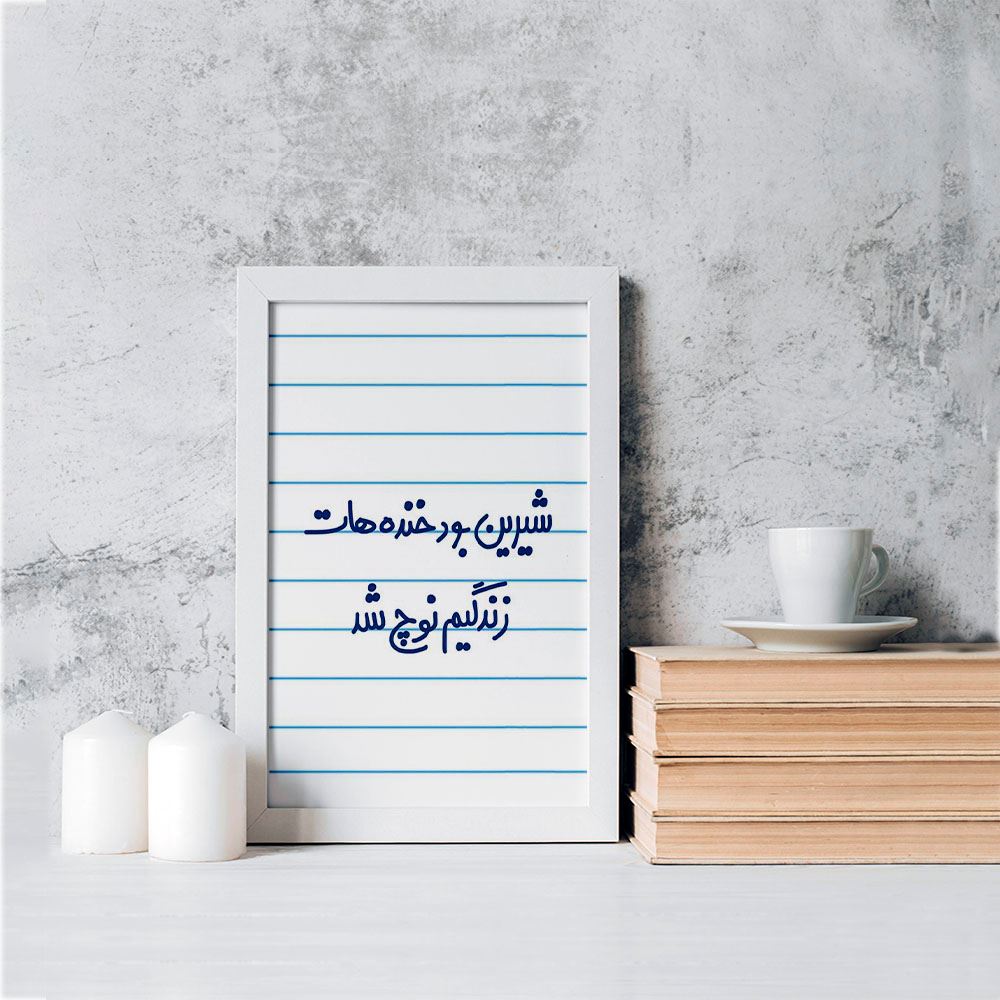 شیرین بود خنده‌هات
زندگیم نوچ شد